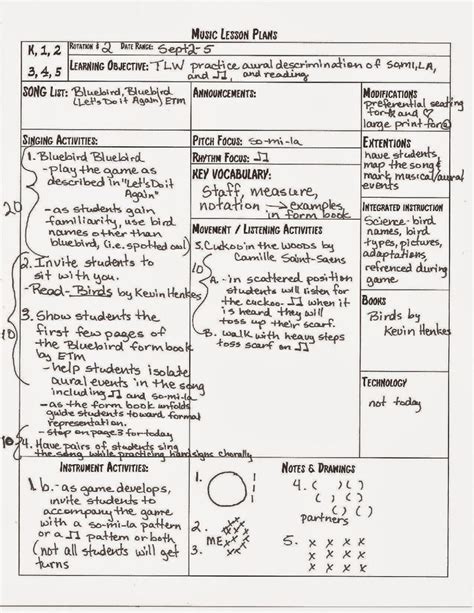 MUSIC LESSON PLANS
K, 1, 2
3, 4, 5
ROTATION # 2 DATE RANGE: Sept 2-5
LEARNING OBJECTIVE: TLW practice aural descrimination of SOMI, LA,
and ♫, and reading
SONG LIST: Bluebird, Bluebird
(Let's Do it Again) ETM
ANNOUNCEMENTS:
MODIFICATIONS
preferential seating
for
large print for
SINGING ACTIVITIES:
1. Bluebird Bluebird
-play the game as
described in "Let's Do it
Again"
20
-as students gain
familiarity, use bird
names other than
bluebird, (i.e. spotted owl)
2. Invite students to
sit with you.
-Read- Birds by Kevin Henkes
10
3. Show students the
first few pages of
the Bluebird form book
by ETM
-help students isolate
aural events in the song
including ♫ and so-mi-la
-as the form book unfolds
guide students toward formal
representation.
-stop on page 3 for today
10
4. Have pairs of students sing
the song while practicing handsigns chorally
PITCH FOCUS: so-mi-la
RHYTHM FOCUS: ♫
KEY VOCABULARY:
Staff, measure,
notation → examples,
in form book
MOVEMENT / LISTENING ACTIVITIES
5. Cukoo in the woods by
Camille Saint-Saens
10
A. - in scattered position
students will listen for
the cuckoo ♫ when it
is heard they will
toss up their scarf.
B. walk with heavy steps
toss scarf on ♫
EXTENTIONS
have students
map the song &
mark musical/aural
events
INTEGRATED INSTRUCTION
Science- bird
names, bird
types, pictures,
adaptations,
refrenced during
game
BOOKS
Birds by
Kevin Henkes
TECHNOLOGY
not today
INSTRUMENT ACTIVITIES:
1. b. - as game develops,
invite students to
accompany the game
with a so-mi-la pattern
or a ♫ pattern or both
(not all students will get
turns
NOTES & DRAWINGS
1.
2.
ME
3.
4. ( ) ( )
( ) ( )
( ) ( )
partners
5. x x x x
x x x x
x x x x